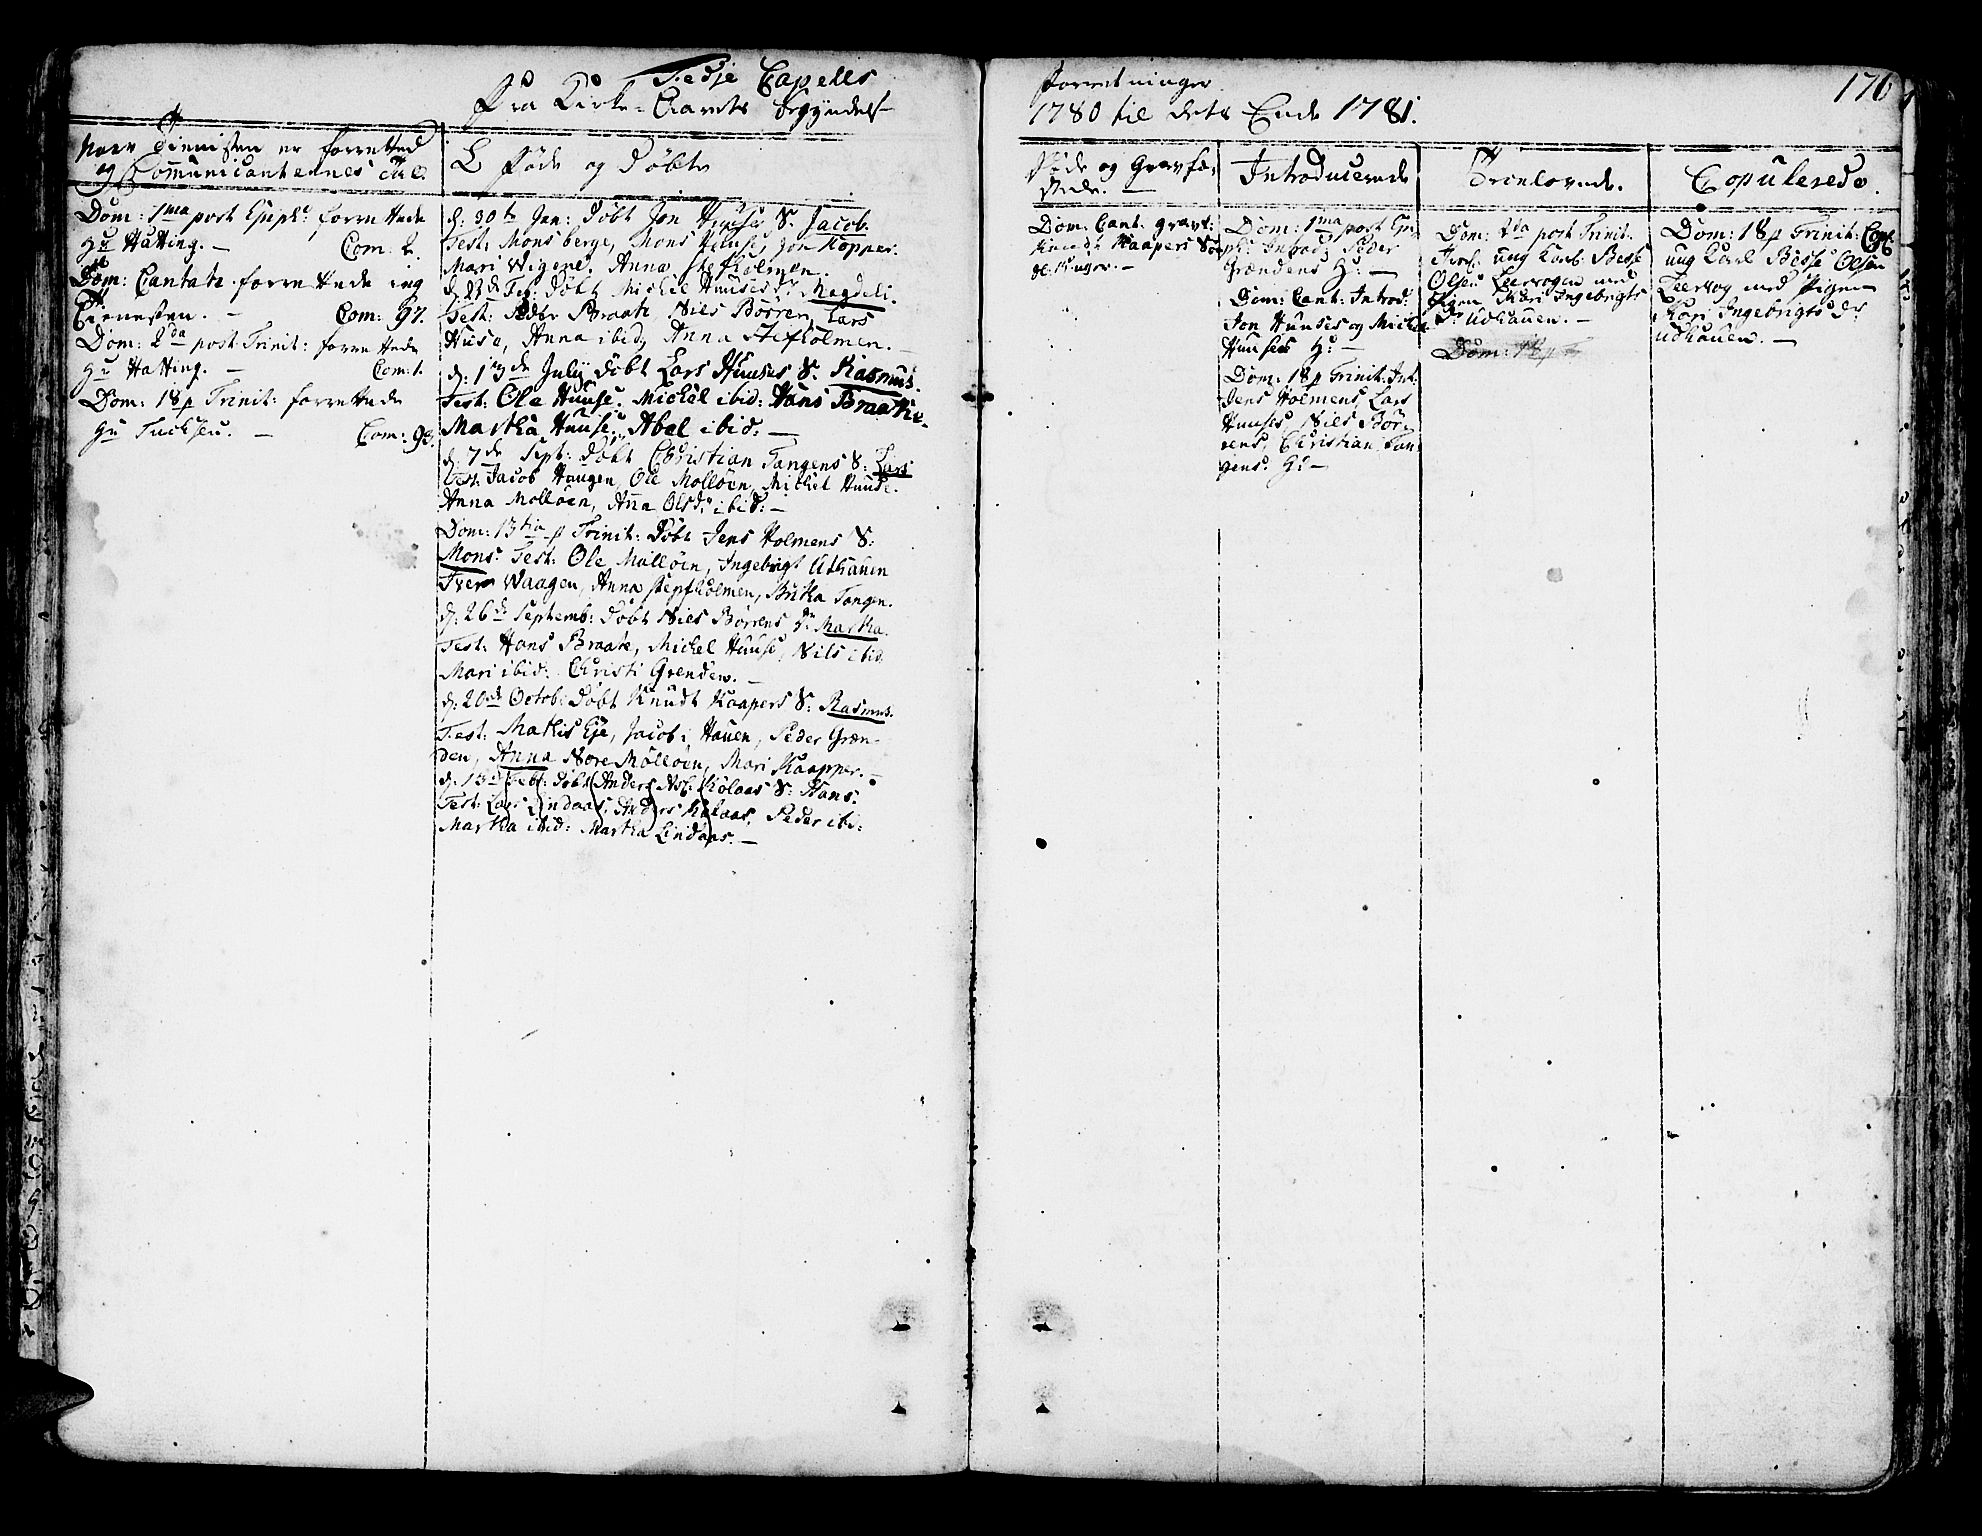 Fedje Capells
Fra Kirke-Aarets begyndelse
Naar Tienisten er forrettet
og Communicanternes Tal.
Dom: 1ma post Epiph: forrettede
Hr Hatting. — Com: 2.
Dom: Cantate forrettede ieg
Tienesten. — Com: 97.
Dom: 2da post Trinit: forrettede
Hr Hatting. — Com: 1.
Dom: 18 p Trinit: forrettede
Hr Tuchsen. — Com: 93.
Føde og Døbte
d: 30te Jan: Døbt Jon Huuses S. Jacob.
Test: Mons berge, Mons Huuse, Jon Kopper.
Mari Wigene. Anna Stefholmen.
d. 23de Feb: Døbt Michel Huuses Dr Magdeli.
Test: Peder Braate, Niels Børren, Lars
Huse, Anna ibid, Anna Stefholmen. —
d: 13de July Døbt Lars Huuses S. Rasmus.
Test: Ole Huuse. Michel ibid: Hans Braathe.
Martha Huuse, Abel ibid: —
d: 7de Sept: Døbt Christian Tangens S: Lars
Test: Jacob Haugen, Ole Molløen, Michel Huuse.
Anna Molløen, Anna Olsdr ibid: —
Dom: 13tia p Trinit: Døbt Jens Holmens S:
Mons. Test: Ole Molløen, Ingebrigt Uthauen
Iver Waagen, Anna Stepfholmen, Britha Tangen.
d: 26de Septemb: Døbt Niels Børrens Dr Martha.
Test: Hans Braate, Michel Huuse, Nils ibid
Mari ibid: Christi Grenden. —
d: 20de Octob: Døbt Knudt Kaapers S: Rasmus.
Test: Mathis Eje, Jacob i Hauen, Peder Græn-
den, Anna Nore Molløen, Mari Kaapper. —
d. 13de Feb: Døbt Anders Kolaas S: Hans.
Test: Lars Lindaas, Anders Kolaas, Peder ibi:
Martha ibid: Martha Lindaas. —
Forretninger
1780 til dets Ende 1781.
176
Døde og Gravfæ-
stede. —
Dom: Cant. gravf:
Knudt Kaapers S.
Introducerede
Dom: 1ma post Epi
ph: Introd: Peder
Grændens H: —
Dom: Cant: Introd:
Jon Huuses og Michel
Huuses H: —
Dom: 18 p Trinit: Int:
Jens Holmens, Lars
Huuses, Niels Bør-
rens, Christian Tan-
gens H: —
Troelovede.
Dom: 2da post Trinit:
Trol: ung Karl Besse
Olsen Leervogen med
Pigen Kari Ingebrigts
Dr Udhauen. —
Dom: 18 p T
Copulerede.
Dom: 18 p Trinit: Cop:
ung Karl Besse Olsen
Leervog med Pigen
Kari Ingebrigts Dr
Udhauen. —